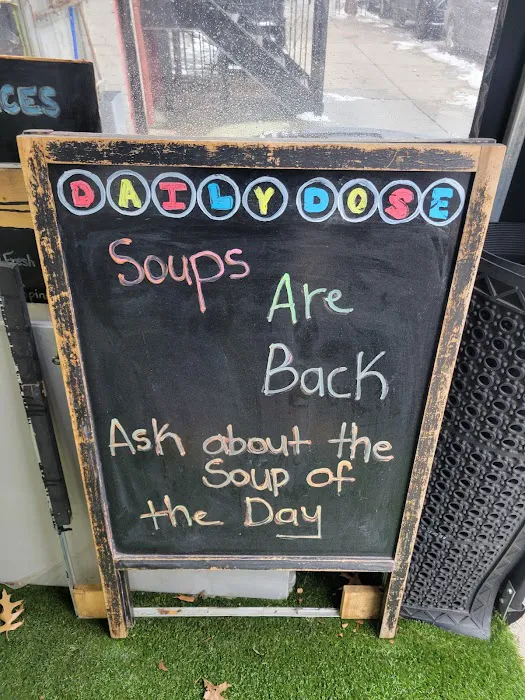 CES
DAILY DOSE
Soups
Are
Back
Ask about the
Soup of
the Day